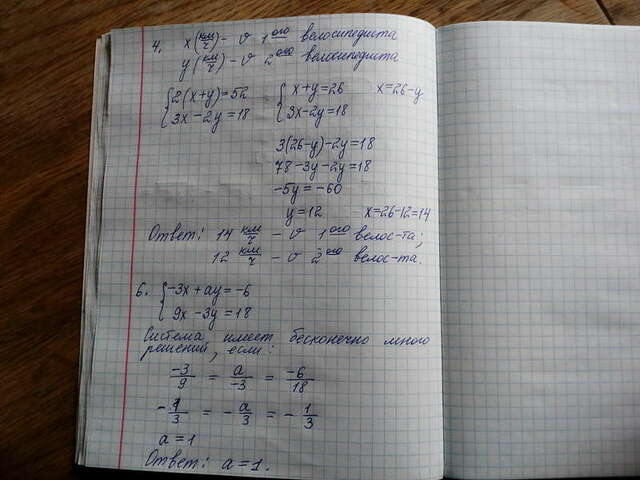 4. x (км/ч) - v 1ого велосипедиста
y (км/ч) - v 2ого велосипедиста
{2(x+y)=52 {x+y=26 x=26-y
{3x-2y=18 {3x-2y=18
3(26-y)-2y=18
78-3y-2y=18
-5y=-60
y=12 x=26-12=14
Ответ: 14 км/ч - v 1ого велос-та;
12 км/ч - v 2ого велос-та.
6. {-3x+ay=-6
{9x-3y=18
Система имеет бесконечно много
решений, если:
-3/9 = a/-3 = -6/18
-1/3 = -a/3 = -1/3
a=1
Ответ: a=1.